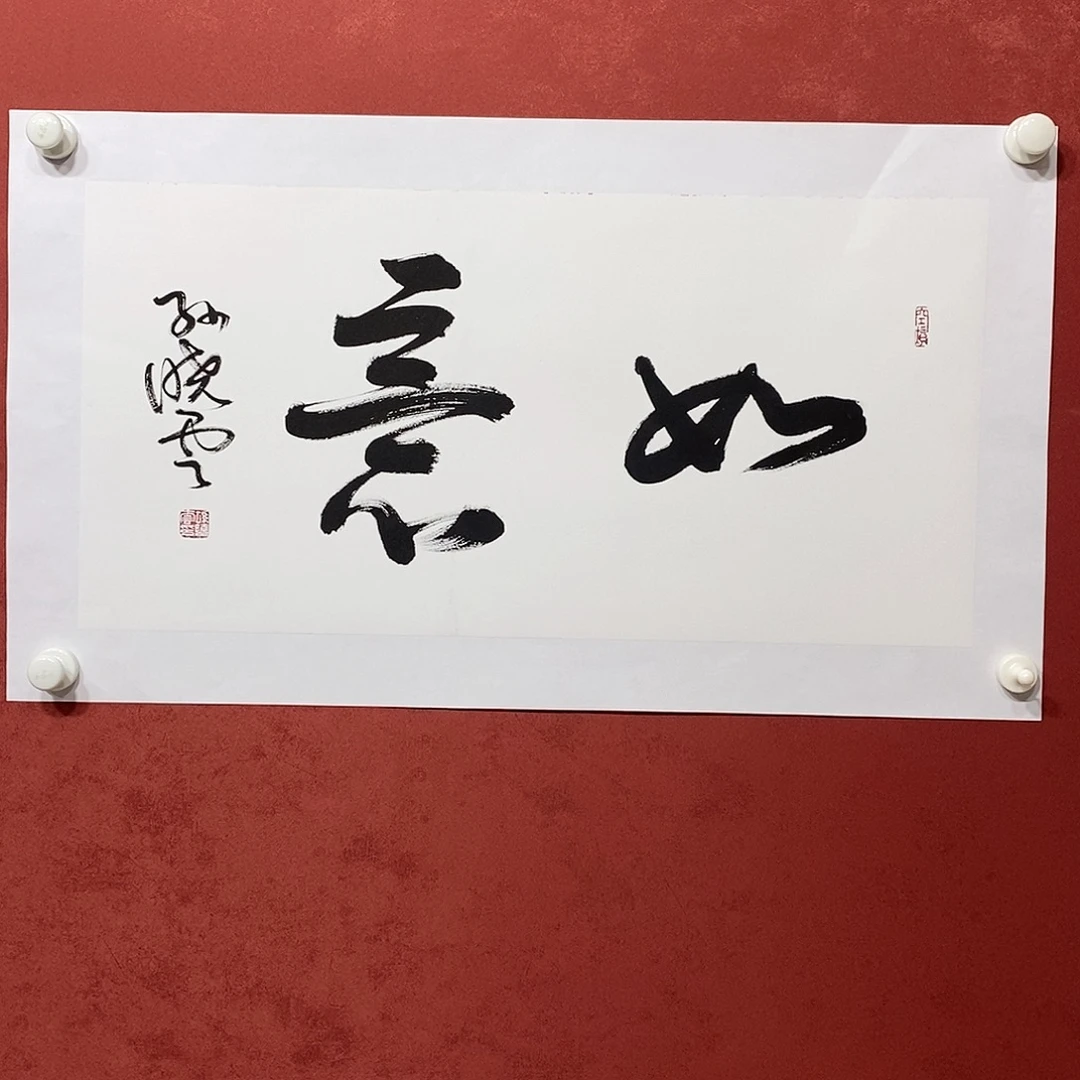 如意
孙晓云